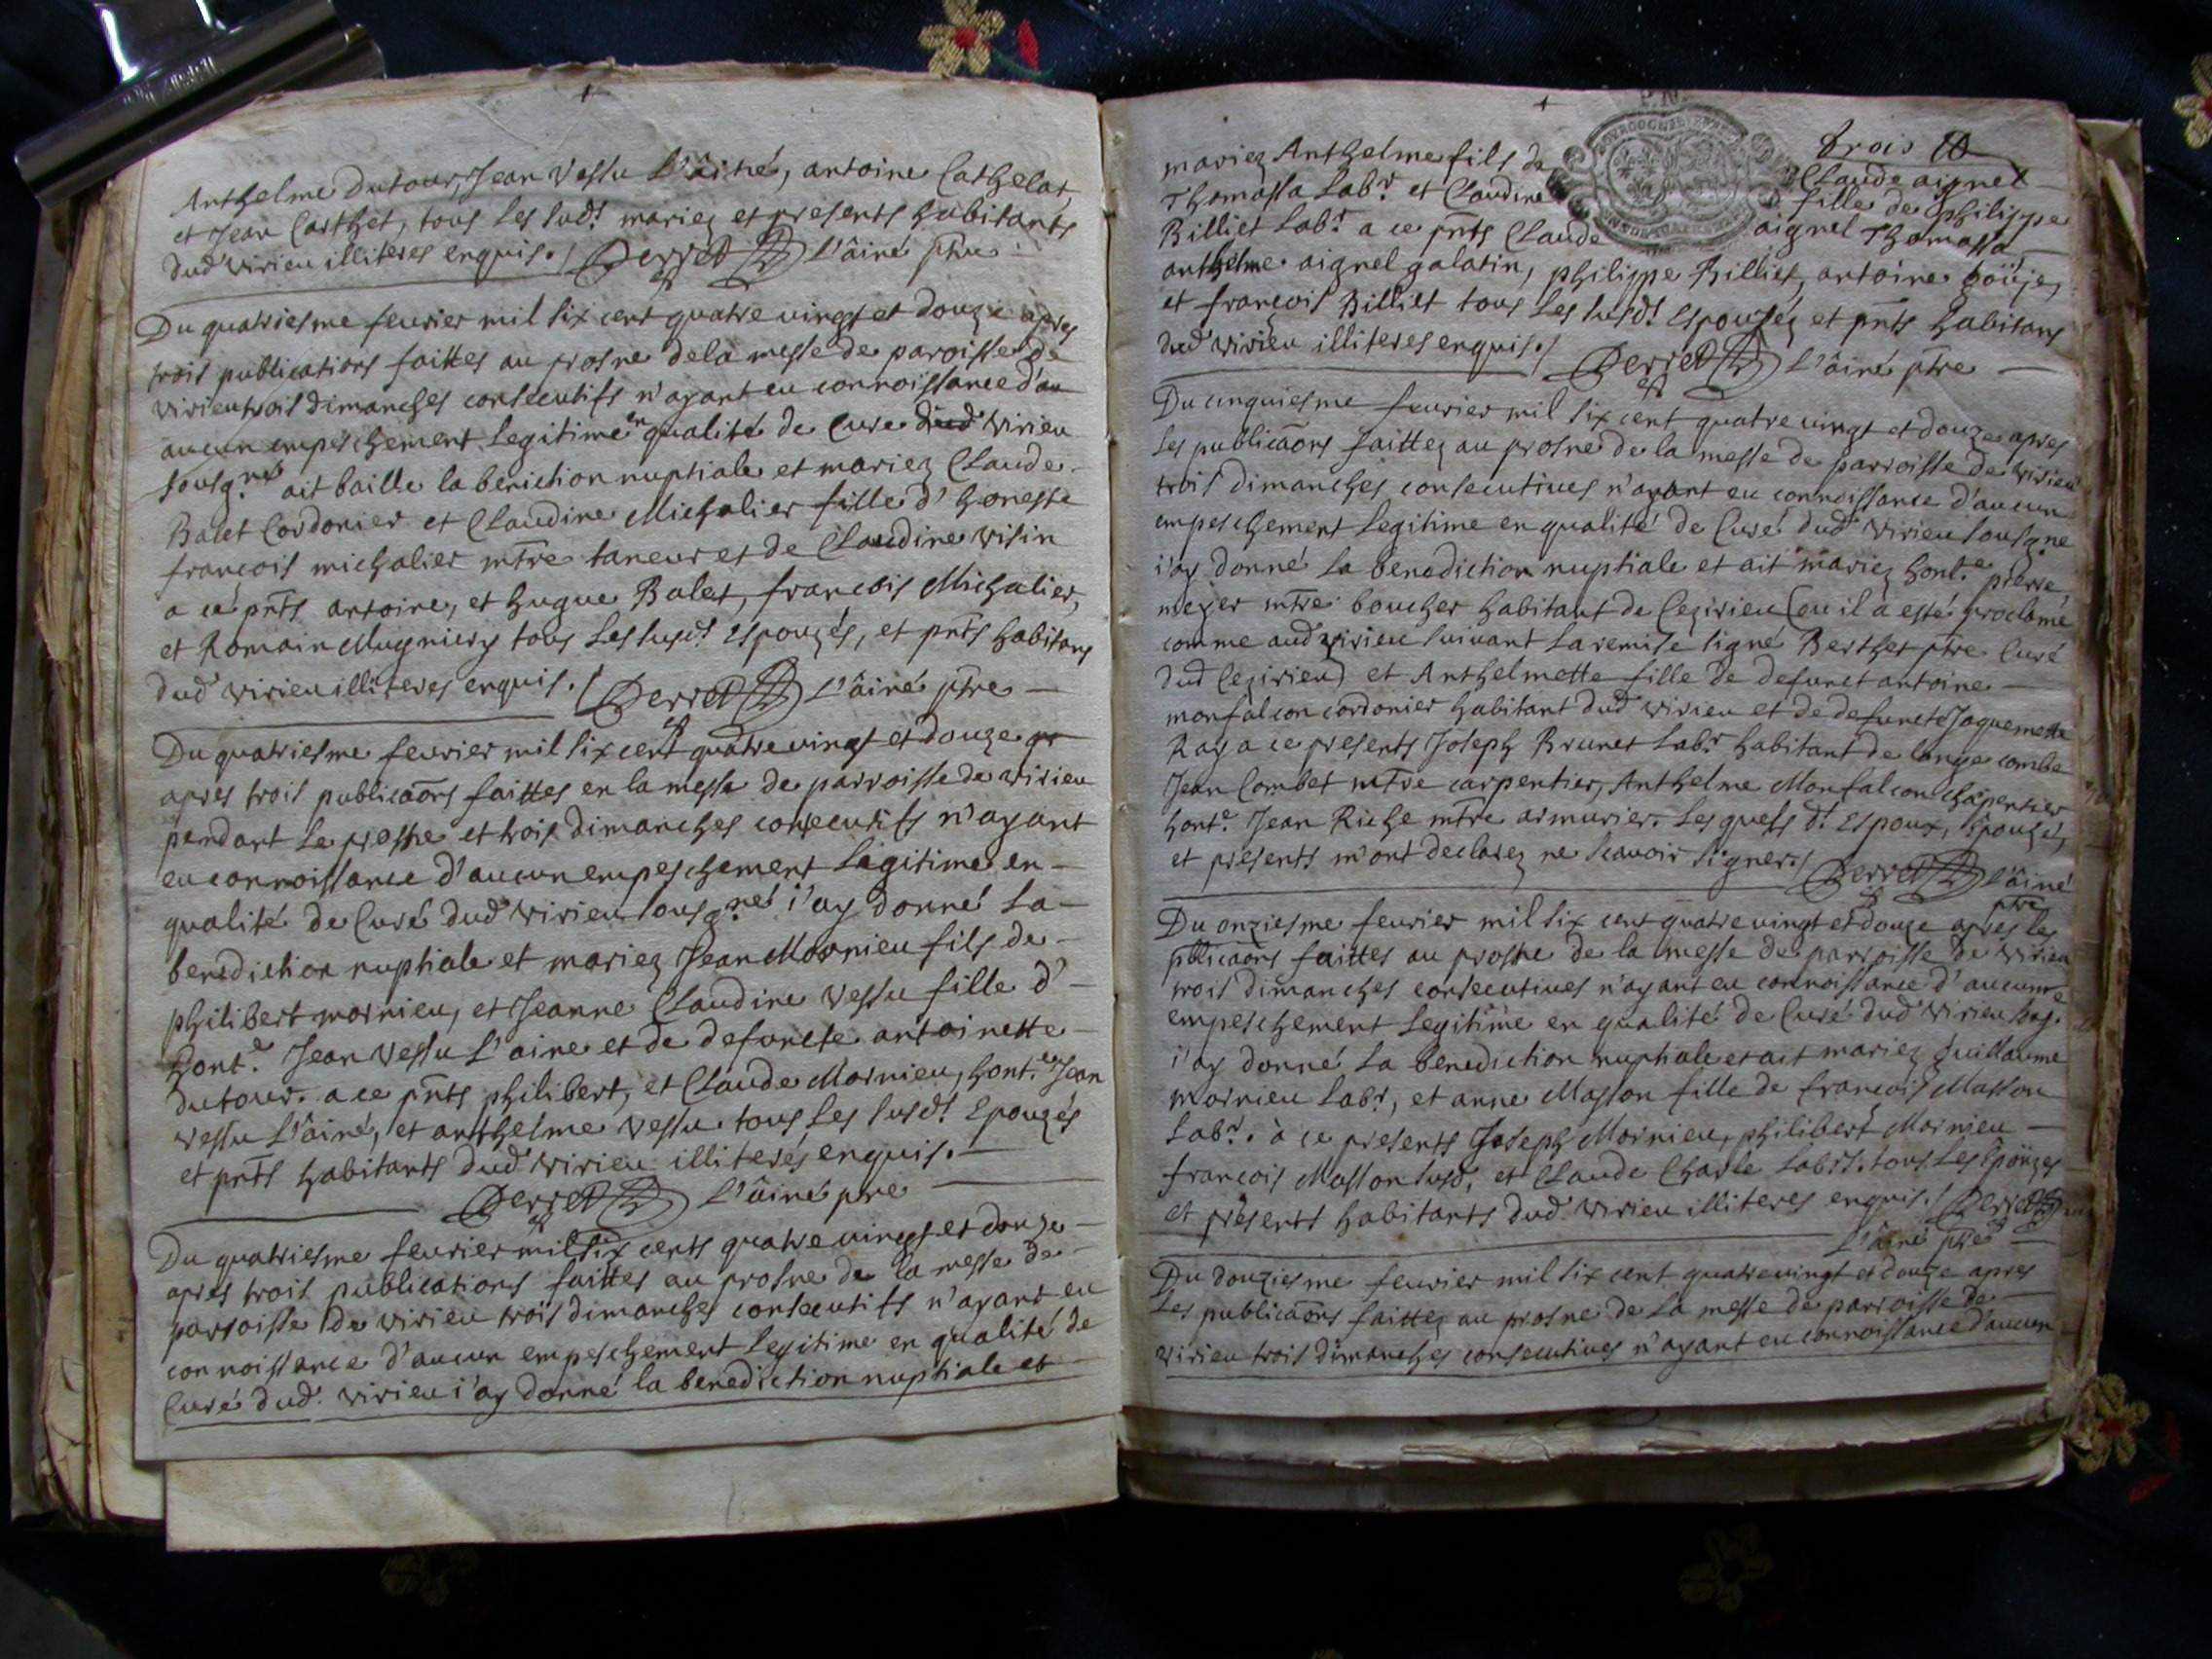 Anthelme Dutour, Jean Vessu L'âiné, antoine Cathelat,
et Jean Carthet, tous Les susd.ts mariez et presents habitants
dud virieu illiteres enquis./ Perret L'âiné ptre
Du quatriesme feurier mil six cent quatre vingt et douze apres
trois publications faittes au prosne de la messe de paroisse de
virieu trois dimanches consecutifs n'ayant eu connoissance d'au
aucun empeschement Legitime en qualité de Cure dud virieu
sousg.né ait baille la beniction nuptiale et mariez Claude
Balet Cordonier et Claudine Michalier fille d'honeste
francois michalier mtre taneur et de Claudine visin
a cé pnts antoine, et hugue Balet, francois Michalier,
et Romain Mugniery tous Les susd.ts Espouzés, et pnts habitans
dud virieu illiteres enquis./ Perret L'âiné ptre
Du quatriesme feurier mil six cent quatre vingt et douze
apres trois publicaons faittes en la messe de parroisse de virieu
pendant Le prosne et trois dimanches consecutifs n'ayant
eu connoissance d'aucun empeschement Legitime en
qualité de Curé dud virieu sousg.né i'ay donné La
benediction nuptiale et mariez Jean Mornieu fils de
philibert mornieu, et Jeanne Claudine Vessu fille d'
hont.e Jean Vessu L'aine et de defuncte antoinette
dutour. a ce pnts philibert, et Claude Mornieu, hont.e Jean
Vessu L'âiné, et anthelme Vessu tous Les susd.ts Epouzés
et pnts habitants dud virieu illiterés enquis.
Perret L'âiné ptre
Du quatriesme feurier mil six cents quatre vingt et douze
apres trois publications faittes au prosne de la messe de
parroisse de virieu trois dimanches consecutifs n'ayant eu
connoissance d'aucun empeschement Legitime en qualité de
Curé dud. virieu i'ay donné la benediction nuptiale et
P.N.
trois
mariez Anthelme fils de Claude aignel
Thomassa Lab.r et Claudine fille de philippe
Billiet Lab.r a ce pnts Claude aignel Thomassa
anthelme aignel galatin, philippe Billiet, antoine goüje,
et francois Billiet tous Les susd.ts Espouséz et pnts habitans
dud virieu illiteres enquis./ Perret L'âiné ptre
Du cinquiesme feurier mil six cent quatre vingt et douze apres
Les publicaons faittez au prosne de la messe de parroisse de virieu
trois dimanches consecutiues n'ayant eu connoissance d'aucun
empeschement Legitime en qualité de Curé dud virieu sousg.ne
i'ay donné La benediction nuptiale et ait mariez hont.e pierre
meyer mtre boucher habitant de Cezirieu (ou il a esté proclamé
comme aud virieu suiuant La remise signé Berthet ptre Curé
dud Cezirieu) et Anthelmette fille de defunct antoine
monfalcon cordonier habitant dud virieu et de defuncte Jaquemette
Ray a ce presents Joseph Brunet Lab.r habitant de longe combe
Jean Combet mtre carpentier, Anthelme Monfalcon chapentier
hont.e Jean Riche mtre armurier. Les quels d.ts Espoux, Epouzés,
et presents m'ont declarez ne scauoir signer./ Perret L'âiné
ptre
Du onziesme feurier mil six cent quatre vingt et douze apres les
pblicaons faittes au prosne de la messe de parroisse de virieu
trois dimanches consecutiues n'ayant eu connoissance d'aucune
empeschement Legitime en qualité de Curé dud virieu
i'ay donné La benediction nuptiale et ait mariez guillaume
mornieu Lab.r, et anne Masson fille de francois Masson
Lab.r. à ce presents Joseph Mornieu, philibert Mornieu
francois Masson susd, et Claude Charle Lab.rs. tous Les Epoüzes
et présents habitants dud virieu illiteres enquis./ Perret
L'âiné ptre
Du douziesme feurier mil six cent quatre vingt et douze apres
Les publicaons faittez au prosne de La messe de parroisse de
virieu trois dimanches consecutiues n'ayant eu connoissance d'aucun